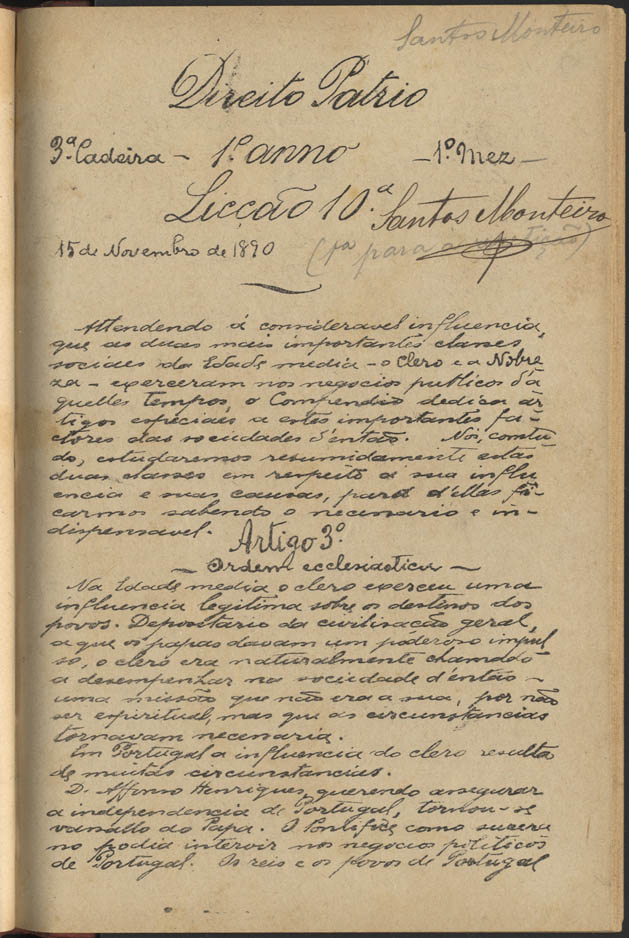 Santos Monteiro
Direito Patrio
3ª Cadeira - 1º anno - 1º Mez -
Licção 10.ª Santos Monteiro
15 de Novembro de 1890 (pa para a repetição)
Attendendo á consideravel influencia,
que as duas mais importantes classes
sociaes da Edade media - o Clero e a Nobre
za - exerceram nos negocios publicos d'a
quelles tempos, o Compendio dedica ar-
tigos especiaes a estes importantes fa-
ctores das sociedades d'então. Nós, comtu-
do, estudaremos resumidamente estas
duas classes em respeito á sua influ
encia e suas causas, para d'ellas fi-
carmos sabendo o necessario e in-
dispensavel.
Artigo 3º
- Ordem ecclesiastica -
Na Edade media o clero exerceu uma
influencia legitima sobre os destinos dos
povos. Depositario da civilisação geral,
a que os papas davam um poderoso impul
so, o clero era naturalmente chamado
a desempenhar na sociedade d'então -
uma missão que não era a sua, por não
ser espiritual, mas que as circunstancias
tornavam necessaria.
Em Portugal a influencia do clero resulta
de muitas circunstancias.
D. Affonso Henriques, querendo assegurar
a independencia de Portugal, tornou-se
vassallo do Papa. O Pontifice como sucera
no podia intervir nos negocios politicos
de Portugal. Os reis e os povos de Portugal